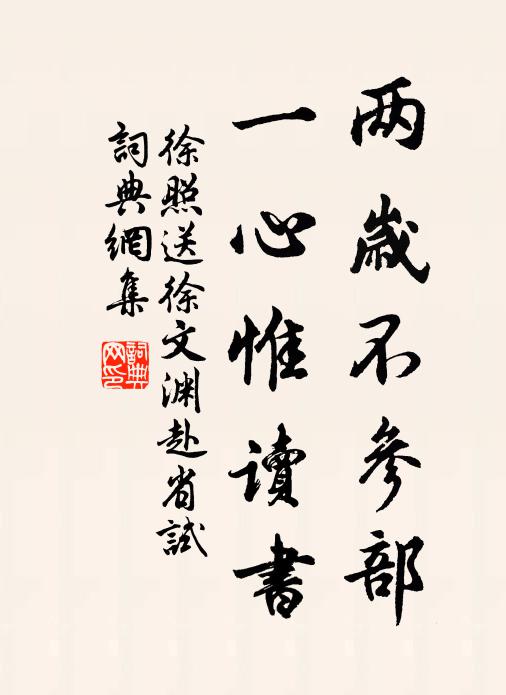 两歲不參部
一心惟讀書
徐照送徐文渊赴省試
詞典網集
詞典网印